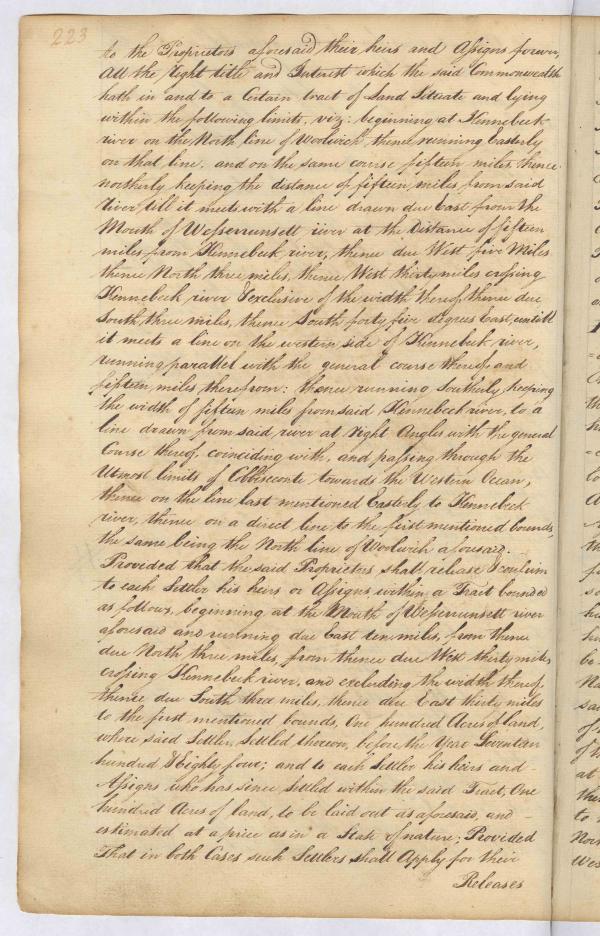 223
to the Proprietors aforesaid their heirs and Assigns forever,
All the right title and Interest which the said Commonwealth
hath in and to a Certain tract of Land Situate and lying
within the following limits, viz: beginning at Kennebeck
river on the North line of Woolwich, thence running Easterly
on that line, and on the same course fifteen miles, thence
northerly keeping the distance of fifteen miles, from said
river, till it meets with a line drawn due East from the
Mouth of Wesserrunsett river at the Distance of fifteen
miles from Kennebeck river, thence due West five Miles
thence North three miles, thence West thirty miles crossing
Kennebeck river & exclusive of the width thereof, thence due
South, three miles, thence South forty five degrees East, untill
it meets a line on the western side of Kennebeck river,
running parallel with the general course thereof, and
fifteen miles therefrom: thence running Southerly keeping
the width of fifteen miles from said Kennebeck river, to a
line drawn from said river at right Angles with the general
Course thereof, coinciding with, and passing through the
Utmost limits of Cobbisconte towards the Western Ocean,
thence on the line last mentioned Easterly to Kennebeck
river, thence on a direct line to the first mentioned bounds,
the same being the North line of Woolwich aforesaid.
Provided that the said Proprietors shall release & confirm
to each Settler his heirs or Assigns, within a Tract bounded
as follows, beginning at the Mouth of Wesserrunsett river
aforesaid and running due East ten miles, from thence
due North three miles, from thence due West thirty miles
crossing Kennebeck river, and excluding the width thereof,
thence due South three miles, thence due East thirty miles
to the first mentioned bounds, One hundred Acres of land,
where said Settler, Settled thereon, before the Year Seventeen
hundred & Eighty four; and to each Settler his heirs and
Assigns who has since Settled within the said Tract, One
hundred Acres of land, to be laid out as aforesaid, and
estimated at a price as in a State of nature; Provided
That in both Cases such Settlers shall Apply for their
Releases